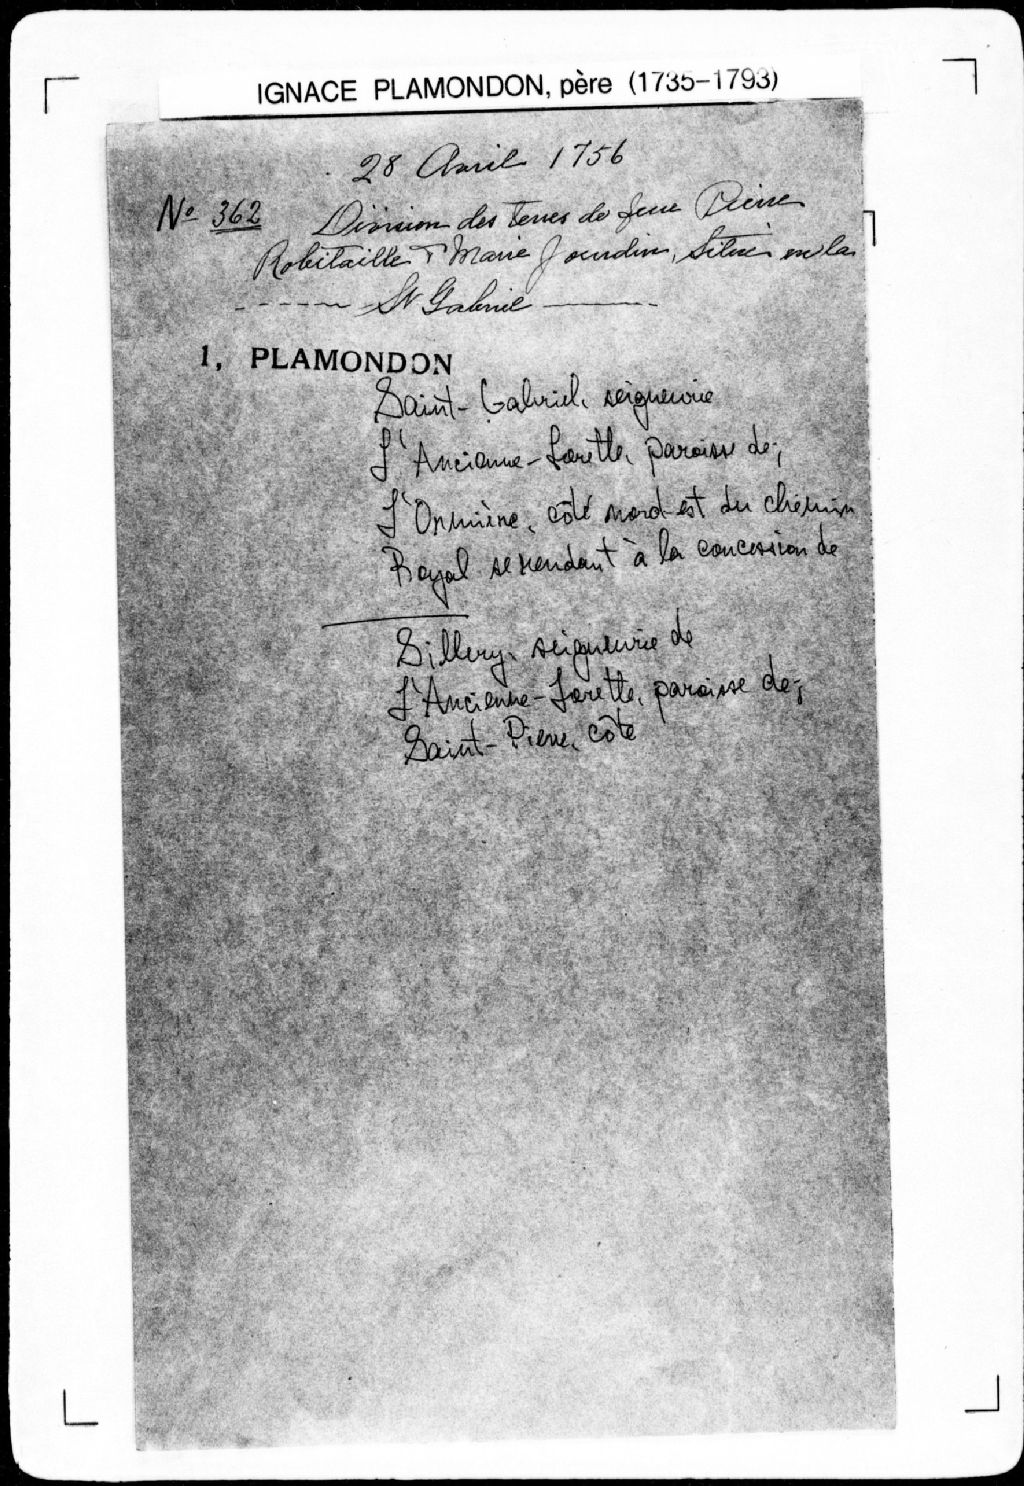 IGNACE PLAMONDON, père (1735-1793)
28 Avril 1756
No 362 Division des terres de feue Pierre
Robitaille & Marie Jourdin, Situé en la
St Gabriel
1, PLAMONDON
Saint-Gabriel, seigneurie
L'Ancienne-Lorette, paroisse de;
L'Ormière, côté nord-est du chemin
Royal se rendant à la concession de
Sillery, seigneurie de
L'Ancienne-Lorette, paroisse de;
Saint-Pierre, côte